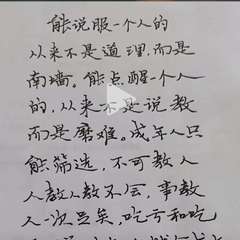 能说服一个人的
从来不是道理,而是
南墙。能点醒一个人
的,从来不是说教
而是磨难。成年人只
能筛选,不可教人
人教人教不会,事教
人一次足矣,吃亏和吃